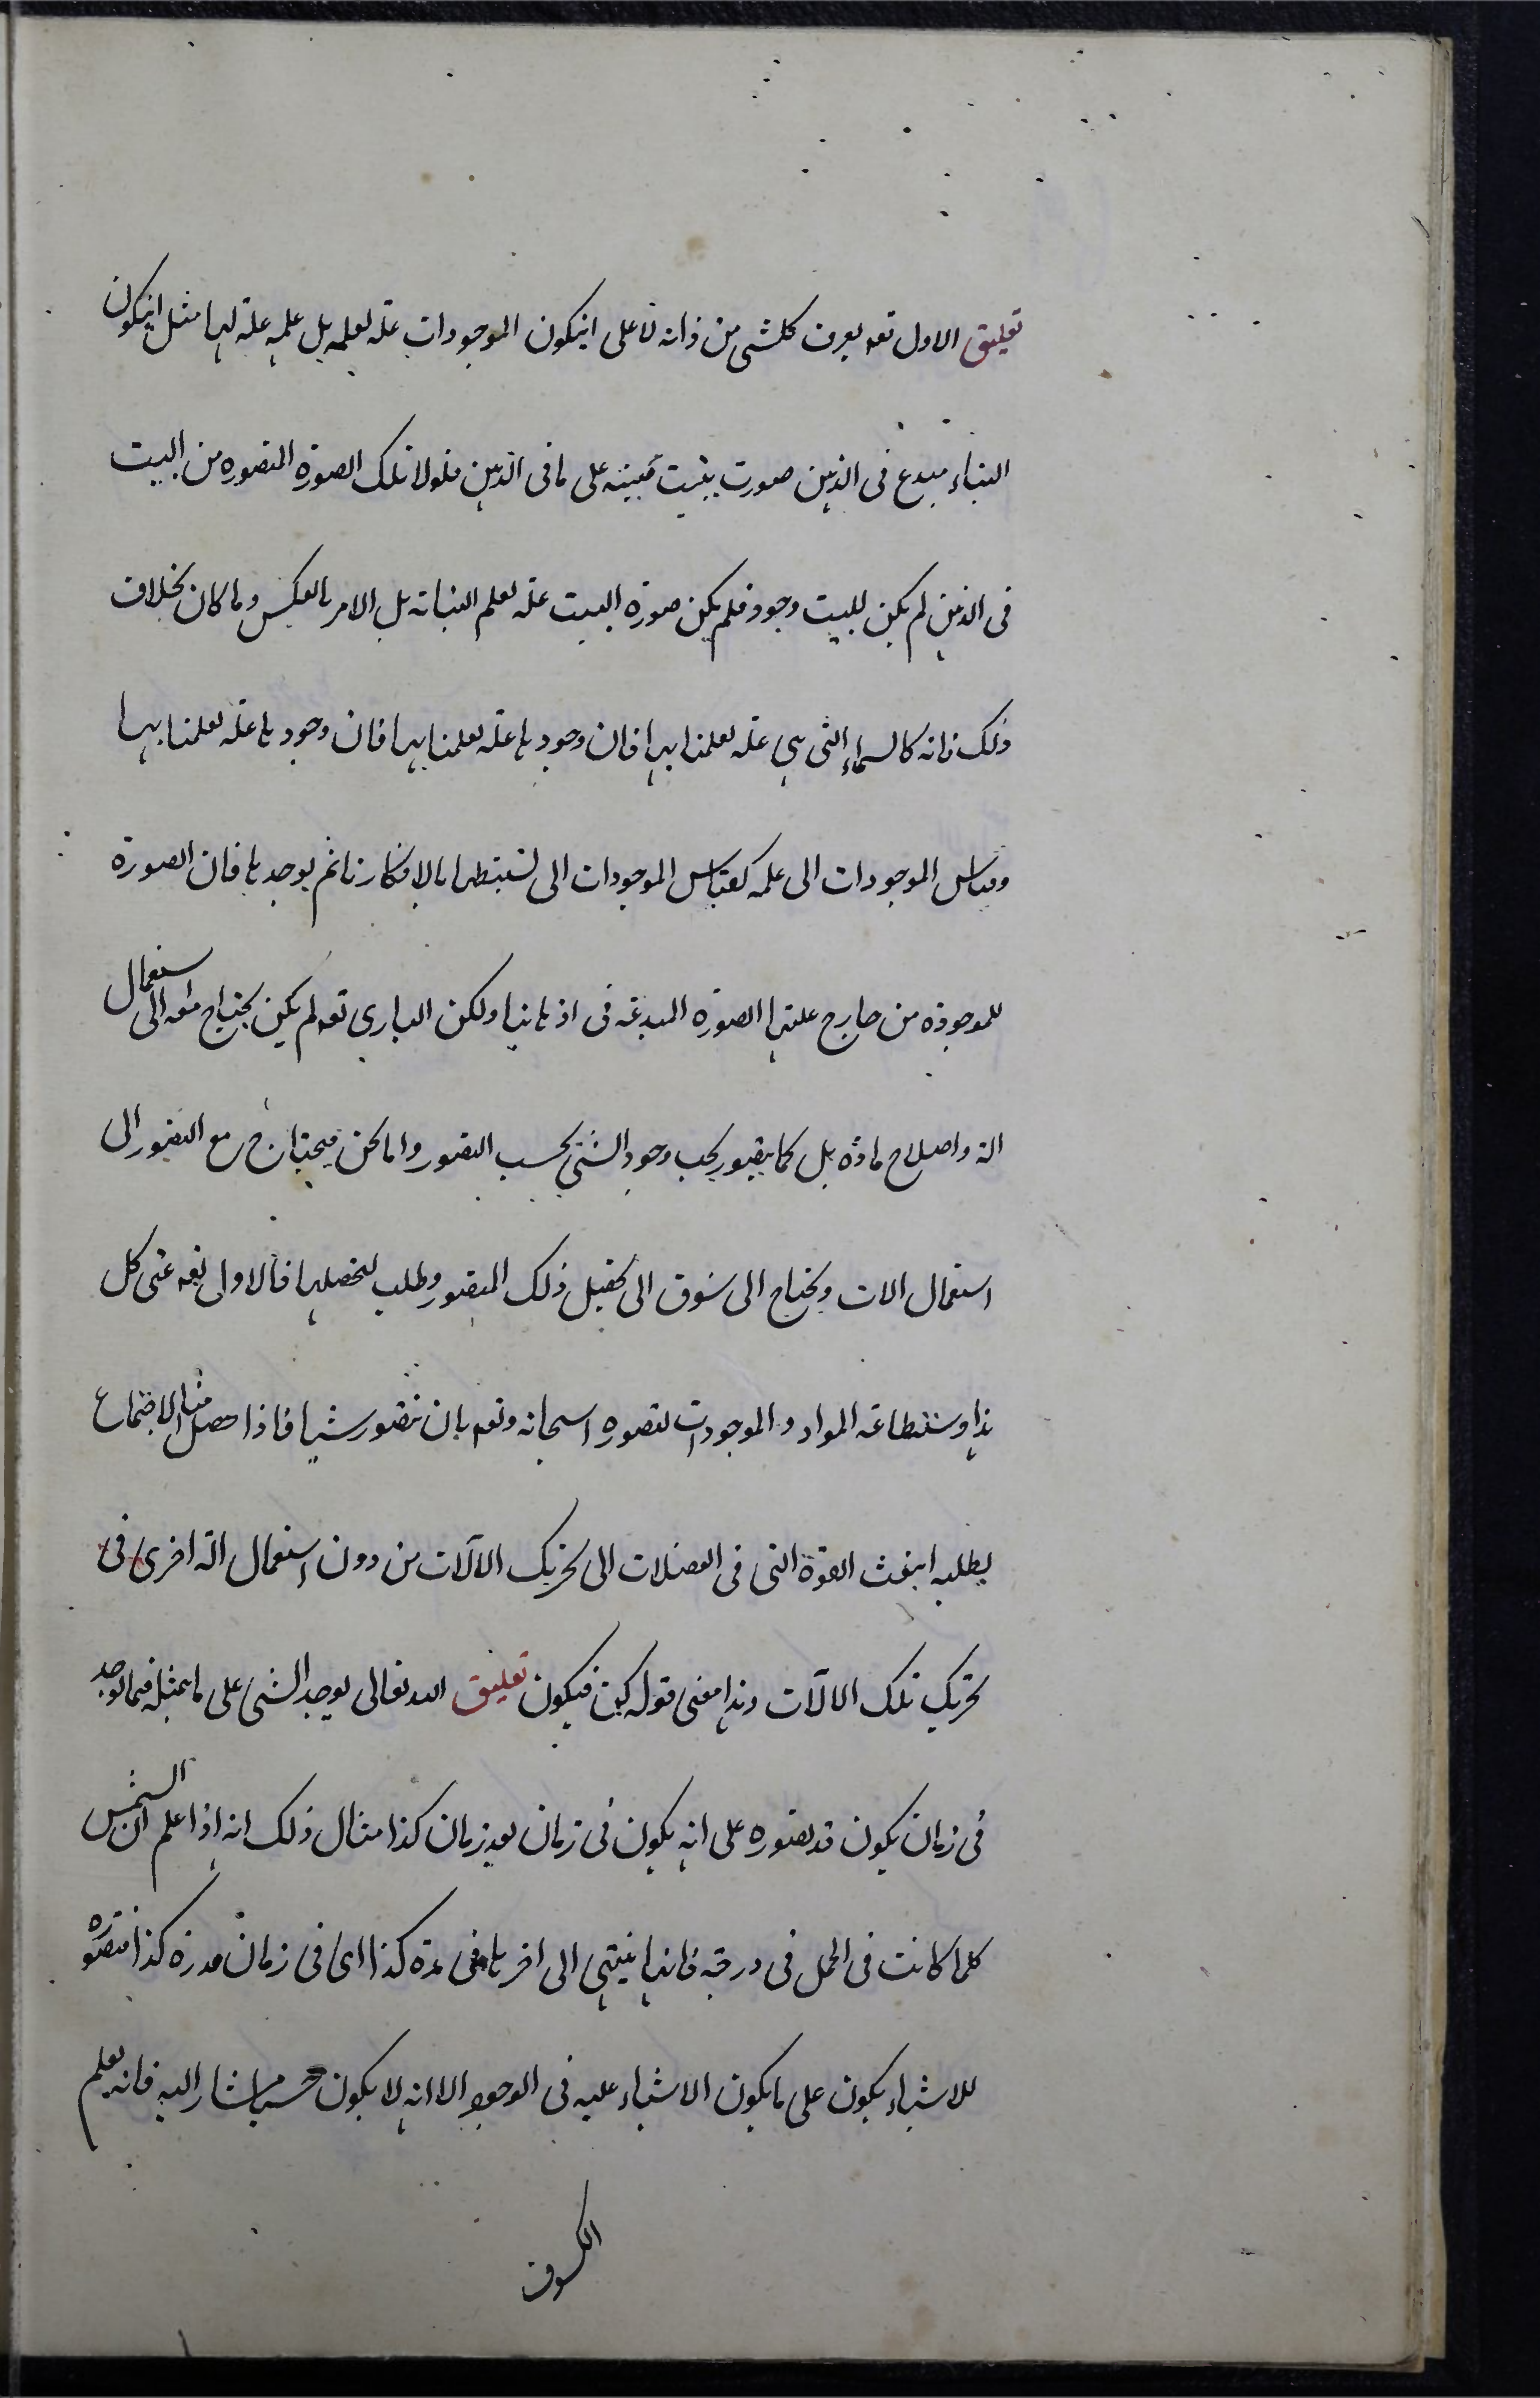 تعليق الاول تعه يعرف كلشی من ذاته لا علی انيكون الموجودات علة لعلمه بل علمه علة لها مثل انيكون
البناء مبدع فی الذهن صورت بيت مبينه علی ما فی الذهن فلولا تلك الصورة المتصوره من البيت
فی الذهن لم يكن للبيت وجود فلم يكن صورة البيت علة لعلم البناته بل الامر بالعكس وما كان بخلاف
ذلك فانه كالسماء التی هی علة لعلمنا بها فان وجودها علة لعلمنا بها فان وجودها علة لعلمنا بها
وقياس الموجودات الی علمه كقياس الموجودات الی نستنبطها بالافكارنا ثم يوجدها فان الصورة
للموجوده من خارج علتها الصورة المبدعة فی اذهاننا ولكن الباری تعه لم يكن يحتاج معه الی استعمال
الة واصلاح مادة بل كما يتصور يجب وجود الشئ بحسب التصور واما نحن فيحتاج مع التصور الی
استعمال الات ويحتاج الی شوق الی تحصيل ذلك المتصور وطلب لتحصيلها فالاول تعه غنی كل
هذا و المواد والموجودات لتصوره سبحانه وتعه بان نتصور شيا فاذا حصل منا الاجتماع
يطلبه انبعث القوة التی فی العضلات الی تحريك الالآت من دون استعمال الة اخری فی
تحريك تلك الالآت وهذا معنی قوله كن فيكون تعليق الله تعالی يوجد الشئ علی ما يمثله فيما يوجد
فی زمان يكون قد يصوره علی انه يكون فی زمان بعد زمان كذا مثال ذلك انه اذا علم ان الشمس
كلما كانت فی الحمل فی درجة فانها ينتهی الی اخرها فی مدة كذا ای فی زمان قدره كذا فتصوره
للاشياء يكون علی ما يكون الاشياء عليه فی الوجود الا انه لا يكون حسيا مشارا اليه فانه يعلم
الكسوف